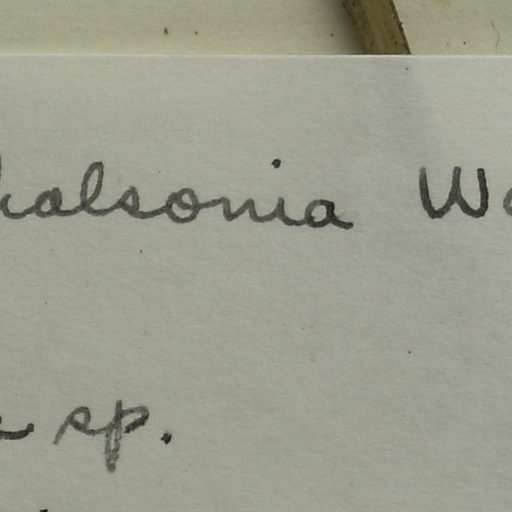 halsonia W
sp.